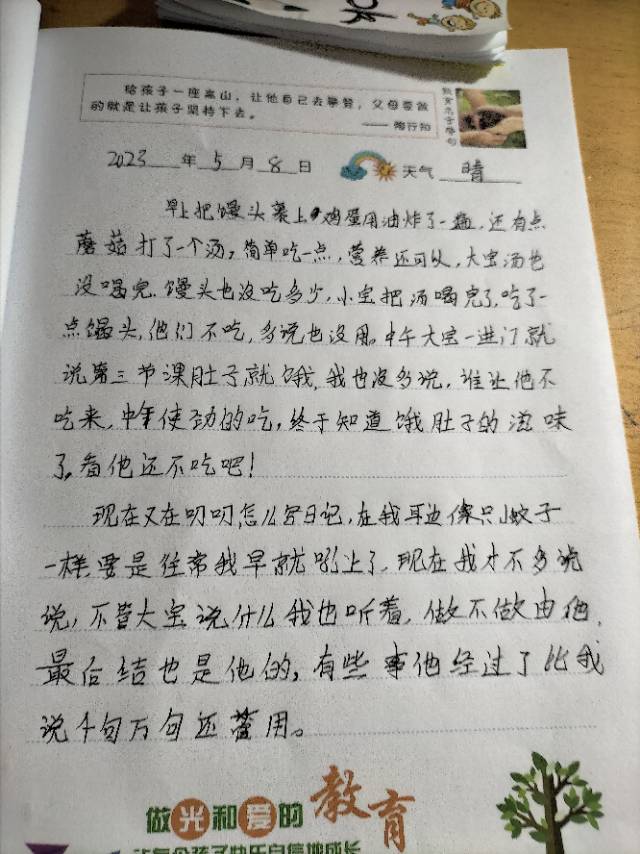 给孩子一座高山，让他自己去攀登，父母要做
的就是让孩子坚持下去。
—— 陶行知
2023 年 5 月 8 日 天气 晴
早上把馒头裹上鸡蛋用油炸了一遍，还有点
蘑菇打了一个汤，简单吃一点，营养还可以，大宝汤也
没喝完，馒头也没吃多少，小宝把汤喝完了，吃了一
点馒头，他们不吃，多说也没用。中午大宝一进门就
说第三节课肚子就饿，我也没多说，谁让他不
吃来，中午使劲的吃，终于知道饿肚子的滋味
了，看他还不吃吧！
现在又在叨叨，怎么写日记，在我耳边像只小蚊子
一样，要是往常我早就吼上了，现在我才不多说
说，不管大宝说什么我也听着，做不做由他，
最后结也是他的，有些事他经过了比我
说千句万句还管用。
做光和爱的教育
让每个孩子快乐自信地成长